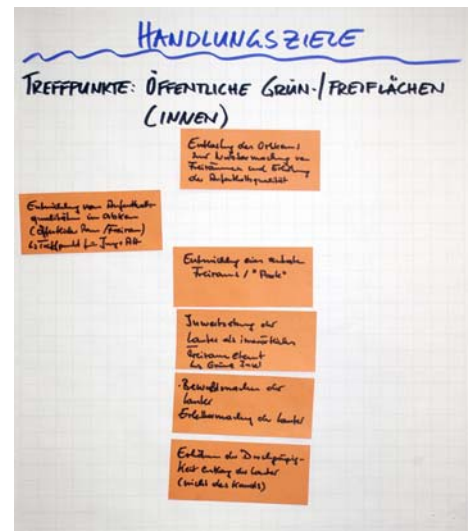 HANDLUNGSZIELE
TREFFPUNKTE: ÖFFENTLICHE GRÜN-/FREIFLÄCHEN
(INNEN)
Entlastung des Ortskerns
zur Nutzbarmachung von
Freiräumen und Erhöhung
der Aufenthaltsqualität
Entwicklung von Aufenthalts-
qualitäten im
(Öffentlicher Raum/Freiraum)
Treffpunkt für Jung + Alt
Entwicklung eines zentralen
Freiraums / "Park"
Inwertsetzung der
Lauter als innerörtliches
Freiraumelement
Grüne Insel
- Bewusstmachen der
Lauter
Erlebbarmachung der Lauter
Erhöhen der Durchgängig-
keit entlang der Lauter
(nicht des Kanals)